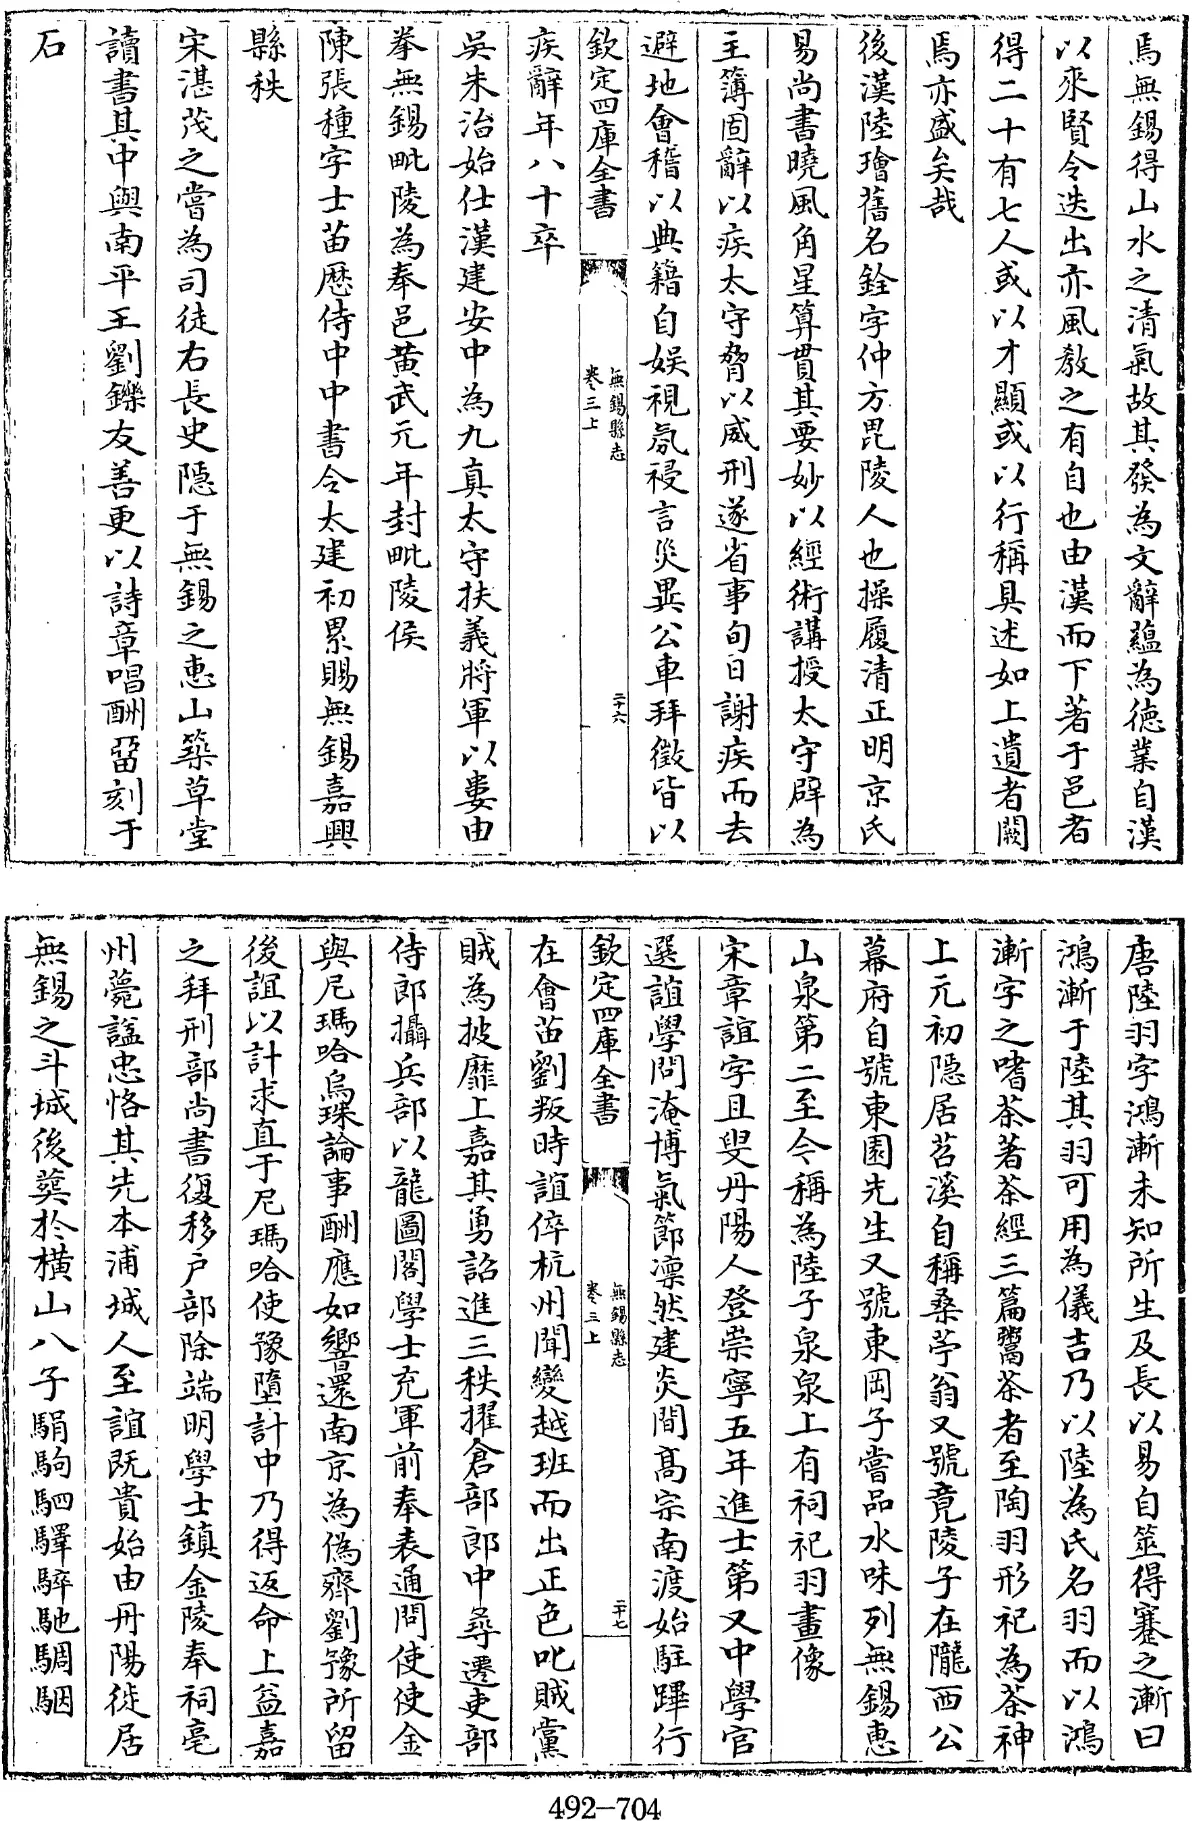 焉無錫得山水之清氣故其發為文辭蘊為德業自漢
以來賢令迭出亦風教之有自也由漢而下著于邑者
得二十有七人或以才顯或以行稱具述如上遺者闕
焉亦盛矣哉
後漢陸璯舊名銓字仲方毘陵人也操履清正明京氏
易尚書曉風角星算貫其要妙以經術講授太守辟為
主簿固辭以疾太守脅以威刑遂省事旬日謝疾而去
避地會稽以典籍自娱視氛祲言災異公車拜徵皆以
欽定四庫全書
無錫縣志
卷三上
二十六
疾辭年八十卒
吳朱治始仕漢建安中為九真太守扶義將軍以婁由
拳無錫毗陵為奉邑黄武元年封毗陵侯
陳張種字士苗歴侍中中書令太建初累賜無錫嘉興
縣秩
宋湛茂之嘗為司徒右長史隱于無錫之惠山築草堂
讀書其中與南平王劉鑠友善更以詩章唱酬畱刻于
石
唐陸羽字鴻漸未知所生及長以易自筮得蹇之漸曰
鴻漸于陸其羽可用為儀吉乃以陸為氏名羽而以鴻
漸字之嗜茶著茶經三篇鬻茶者至陶羽形祀為茶神
上元初隱居苕溪自稱桑苧翁又號竟陵子在隴西公
幕府自號東園先生又號東岡子嘗品水味列無錫惠
山泉第二至今稱為陸子泉泉上有祠祀羽畫像
宋章誼字且叟丹陽人登崇寧五年進士第又中學官
選誼學問淹博氣節凛然建炎間髙宗南渡始駐蹕行
欽定四庫全書
無錫縣志
卷三上
二十七
在會苗劉叛時誼倅杭州聞變越班而出正色叱賊黨
賊為披靡上嘉其勇詔進三秩擢倉部郎中尋遷吏部
侍郎攝兵部以龍圖閣學士充軍前奉表通問使使金
與尼瑪哈烏珠論事酬應如響還南京為偽齊劉豫所留
後誼以計求直于尼瑪哈使豫墮計中乃得返命上益嘉
之拜刑部尚書復移户部除端明學士鎮金陵奉祠亳
州薨諡忠恪其先本浦城人至誼既貴始由丹陽徙居
無錫之斗城後葬於横山八子駽駒駟驛騂馳騆駰
492-704